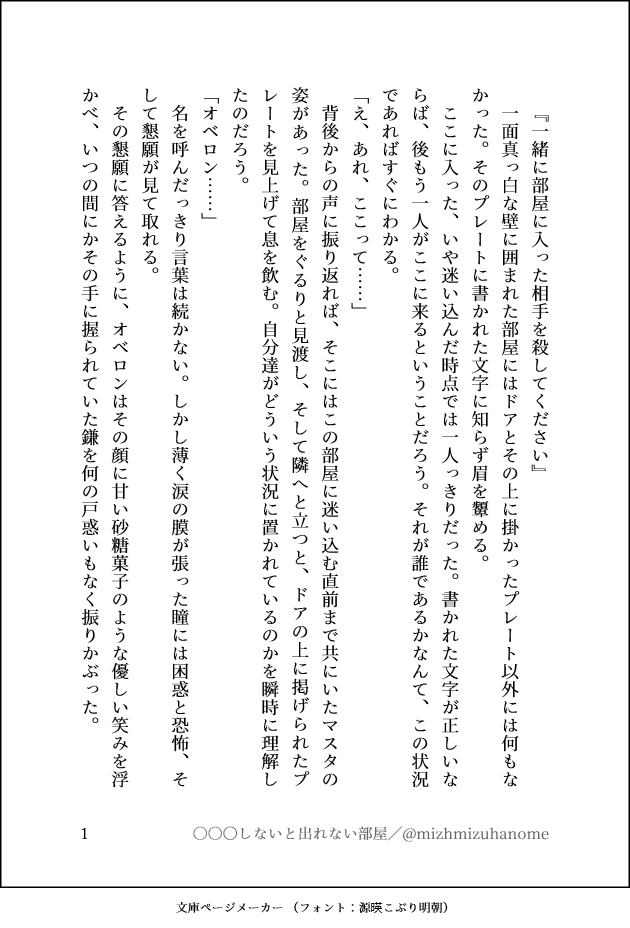 『一緒に部屋に入った相手を殺してください』
一面真っ白な壁に囲まれた部屋にはドアとその上に掛かったプレート以外には何もな
かった。そのプレートに書かれた文字に知らず眉を顰める。
ここに入った、いや迷い込んだ時点では一人っきりだった。書かれた文字が正しいな
らば、後もう一人がここに来るということだろう。それが誰であるかなんて、この状況
であればすぐにわかる。
「え、あれ、ここって……」
背後からの声に振り返れば、そこにはこの部屋に迷い込む直前まで共にいたマスタの
姿があった。部屋をぐるりと見渡し、そして隣へと立つと、ドアの上に掲げられたプ
レートを見上げて息を飲む。自分達がどういう状況に置かれているのかを瞬時に理解し
たのだろう。
「オベロン……」
名を呼んだっきり言葉は続かない。しかし薄く涙の膜が張った瞳には困惑と恐怖、そ
して懇願が見て取れる。
その懇願に答えるように、オベロンはその顔に甘い砂糖菓子のような優しい笑みを浮
かべ、いつの間にかその手に握られていた鎌を何の戸惑いもなく振りかぶった。
1
〇〇〇しないと出れない部屋／@mizhmizuhanome
文庫ページメーカー（フォント：源暎こぶり明朝）